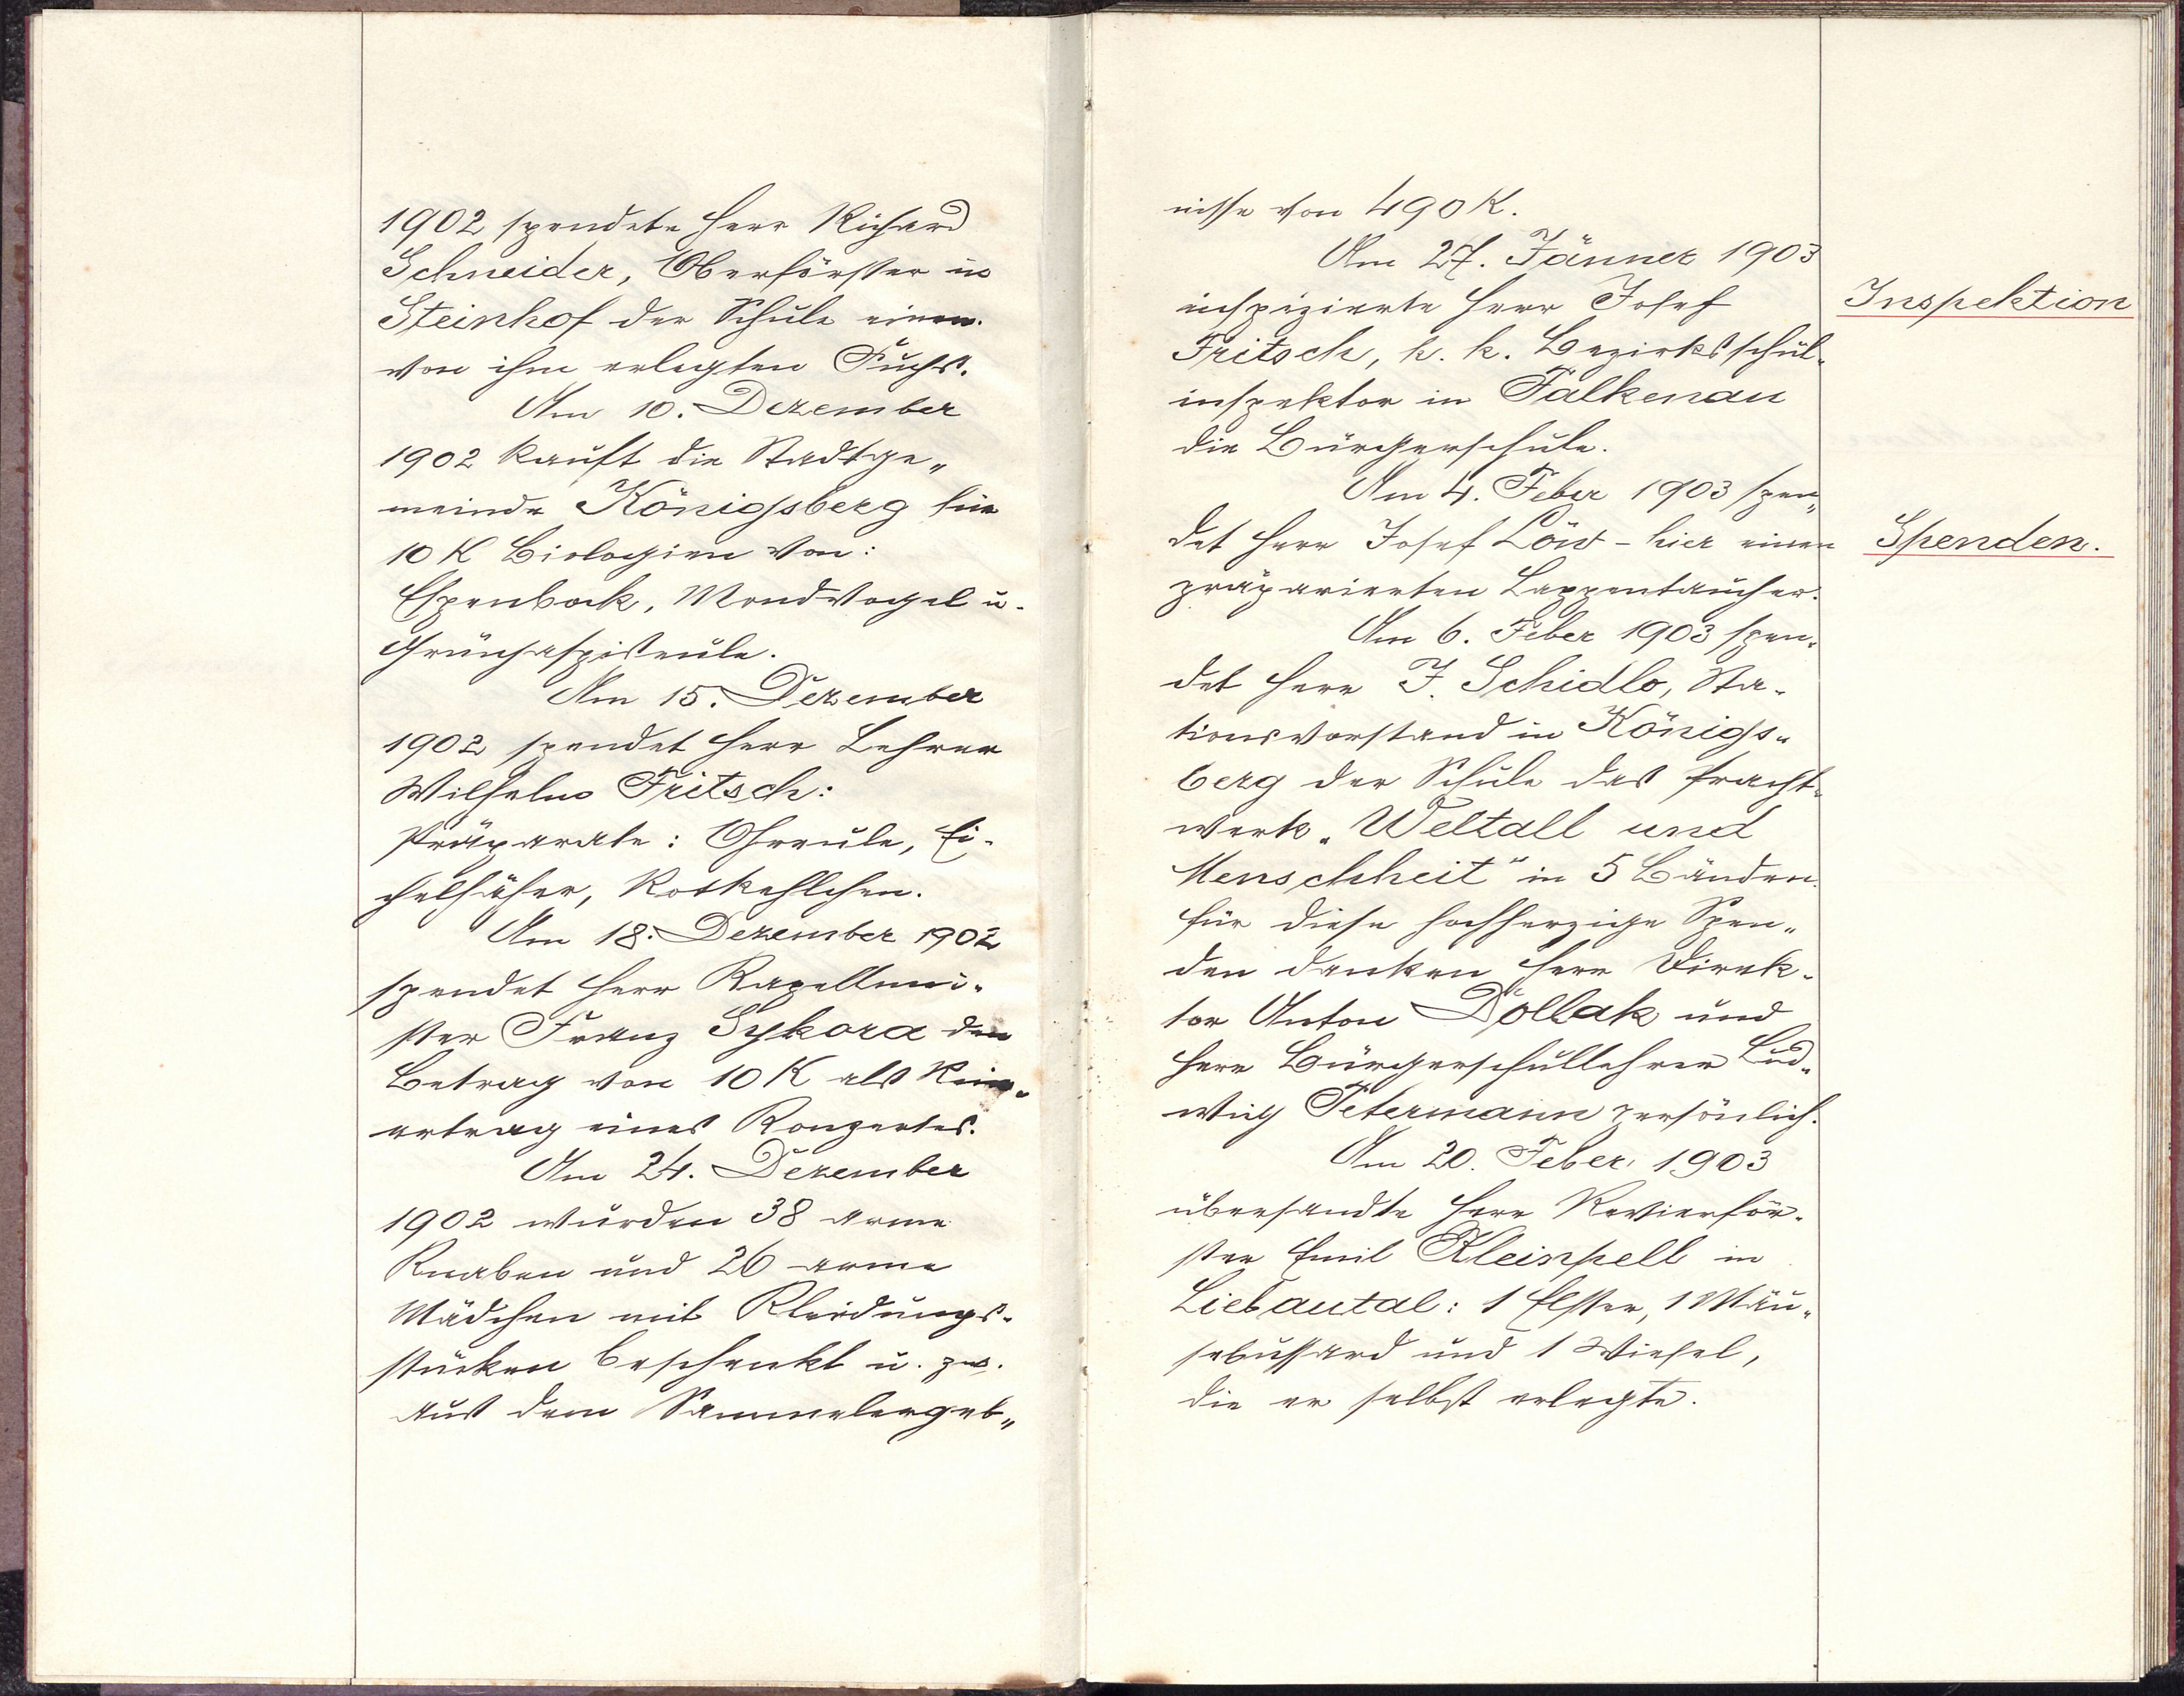 1902 spendete Herr Richard
Schneider, Oberförster in
Steinhof der Schule einen
von ihm erlegten Fuchs.
Am 10. Dezember
1902 kauft die Stadtge„
meinde Königsberg für
10 K Biologien von:
Espenbock, Mondvogel u.
Am 15. Dezember
1902 spendet Herr Lehrer
Wilhelm Fritsch:
Präparate: Ohreule, Ei-
chelhäher, Rotkehlchen.
Am 18. Dezember 1902
spendet Herr Kapellmei-
ster Franz Sykora den
Betrag von 10 K als Rein-
ertrag eines Konzertes.
Am 24. Dezember
1902 wurden 38 arme
Knaben und 26 arme
Mädchen mit Kleidungs-
stücken beschenkt u. zw.
aus dem Sammelergeb„
nisse von 490 K.
Am 27. Jänner 1903
inspizierte Herr Josef
Inspektion
Fritsch, k. k. Bezirksschul-
inspektor in Falkenau
die Bürgerschule.
Am 4. Feber 1903 spen„
det Herr Josef Löw - hier einen
Spenden.
präparierten Lappentaucher.
Am 6. Feber 1903 spen-
det Herr J. Schidlo, Sta-
tionsvorstand in Königs-
berg der Schule das Pracht-
werk „Weltall und
Menschheit" in 5 Bänden.
Für diese hochherzige Spen„
den danken Herr Direk-
tor Anton Döllak und
Herr Bürgerschullehrer Lud-
wig Petermann persönlich.
Am 20. Feber 1903
übersandte Herr Revierför-
ster Emil Kleinpell in
Liebautal: 1 Elster, 1 Mäu-
sebussard und 1 Wiesel,
die er selbst erlegte.